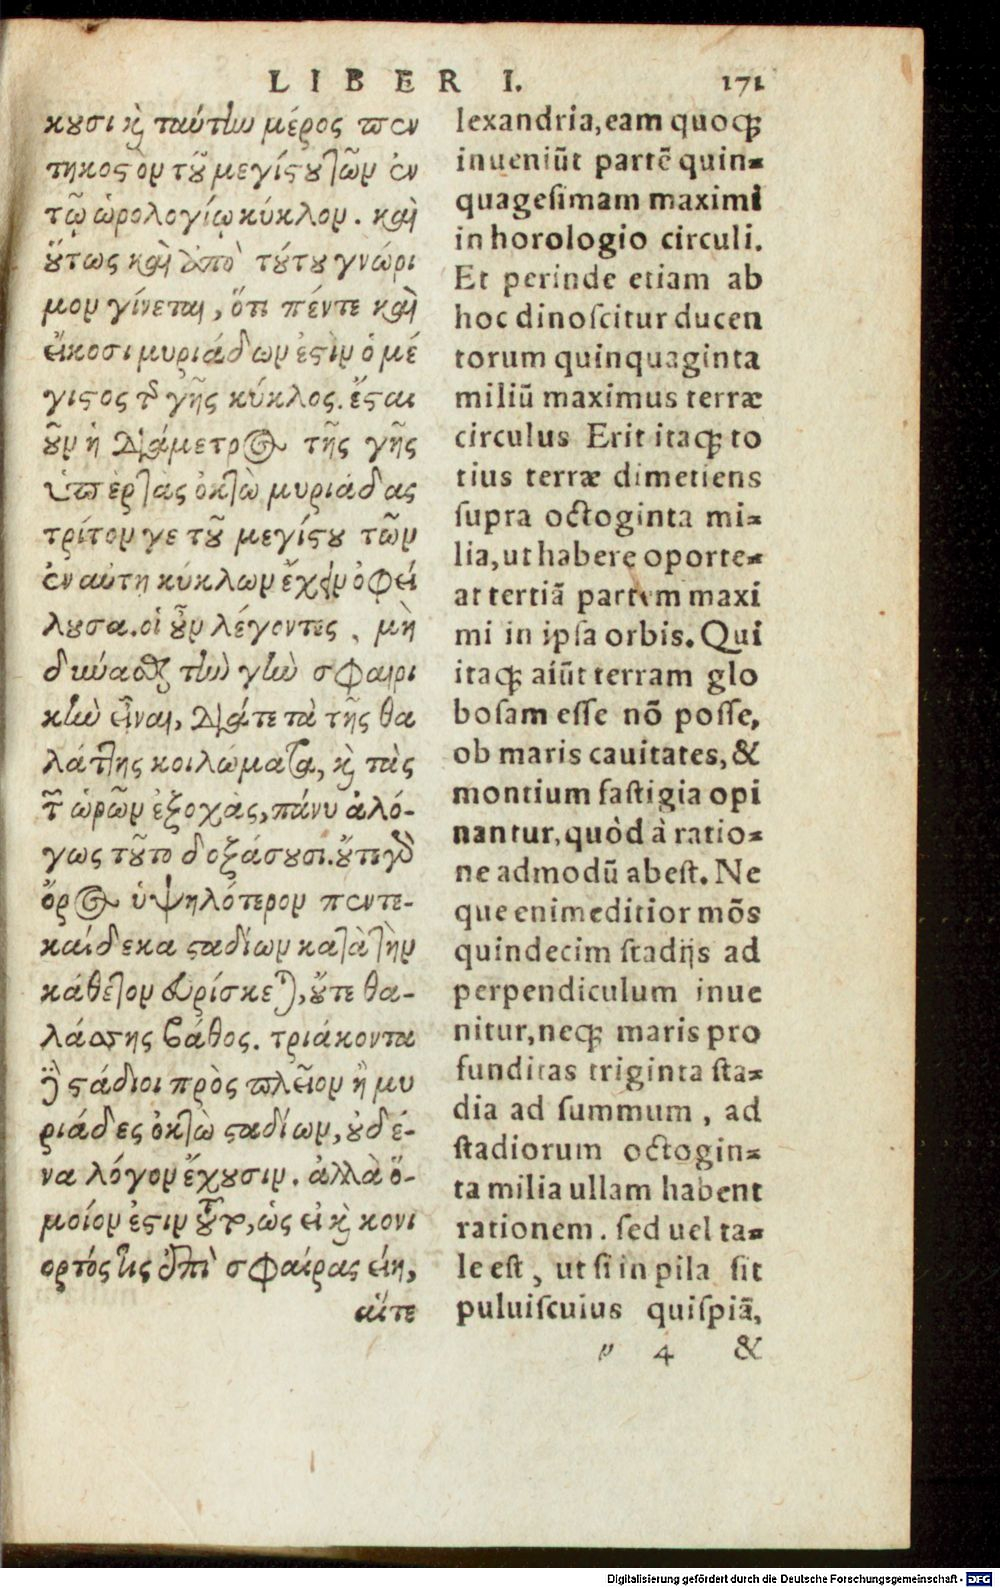 LIBER I. 171
κουσι καὶ ταύτην μέρος πεν
τηκοστὸν τοῦ μεγίστου τῶν ἐν
τῷ ὡρολογίῳ κύκλον. καὶ
οὕτως καὶ ἀπὸ τούτου γνώρι
μον γίνεται, ὅτι πέντε καὶ
εἴκοσι μυριάδων ἐστὶν ὁ μέ
γιστος τῆς γῆς κύκλος. ἔσται
οὖν ἡ διάμετρος τῆς γῆς
ὑπὲρ τὰς ὀκτὼ μυριάδας
τρίτον γε τοῦ μεγίστου τῶν
ἐν αὐτῇ κύκλων ἔχειν ὀφεί
λουσα. οἱ οὖν λέγοντες, μὴ
δύνασθαι τὴν γῆν σφαιρι
κὴν εἶναι, διά τε τὰ τῆς θα
λάττης κοιλώματα, καὶ τὰς
τῶν ὀρῶν ἐξοχὰς, πάνυ ἀλό-
γως τοῦτο δοξάσουσι. οὔτε γὰρ
ὄρος ὑψηλότερον πεντε-
καίδεκα σταδίων κατὰ τὴν
κάθετον εὑρίσκεται, οὔτε θα-
λάσσης βάθος. τριάκοντα
δὲ στάδιοι πρὸς πλεῖον ἢ μυ
ριάδες ὀκτὼ σταδίων, οὐδέ-
να λόγον ἔχουσιν. ἀλλὰ ὅ-
μοίον ἐστιν οὕτω, ὡς εἰ καὶ κονι
ορτός τις ἐπὶ σφαίρας εἴη,
αἵτε
lexandria, eam quoq́;
inueniũt partẽ quin-
quagesimam maximi
in horologio circuli.
Et perinde etiam ab
hoc dinoscitur ducen
torum quinquaginta
miliũ maximus terræ
circulus Erit itaq́; to
tius terræ dimetiens
supra octoginta mi-
lia, ut habere oporte-
at tertiã partem maxi
mi in ipsa orbis. Qui
itaq́; aiũt terram glo
bosam esse nõ posse,
ob maris cauitates, &
montium fastigia opi
nantur, quòd à ratio-
ne admodũ abest. Ne
que enim editior mõs
quindecim stadijs ad
perpendiculum inue
nitur, neq́; maris pro
funditas triginta sta-
dia ad summum, ad
stadiorum octogin-
ta milia ullam habent
rationem. sed uel ta-
le est, ut si in pila sit
puluiscuius quispiã,
y 4 &
Digitalisierung gefördert durch die Deutsche Forschungsgemeinschaft - DFG